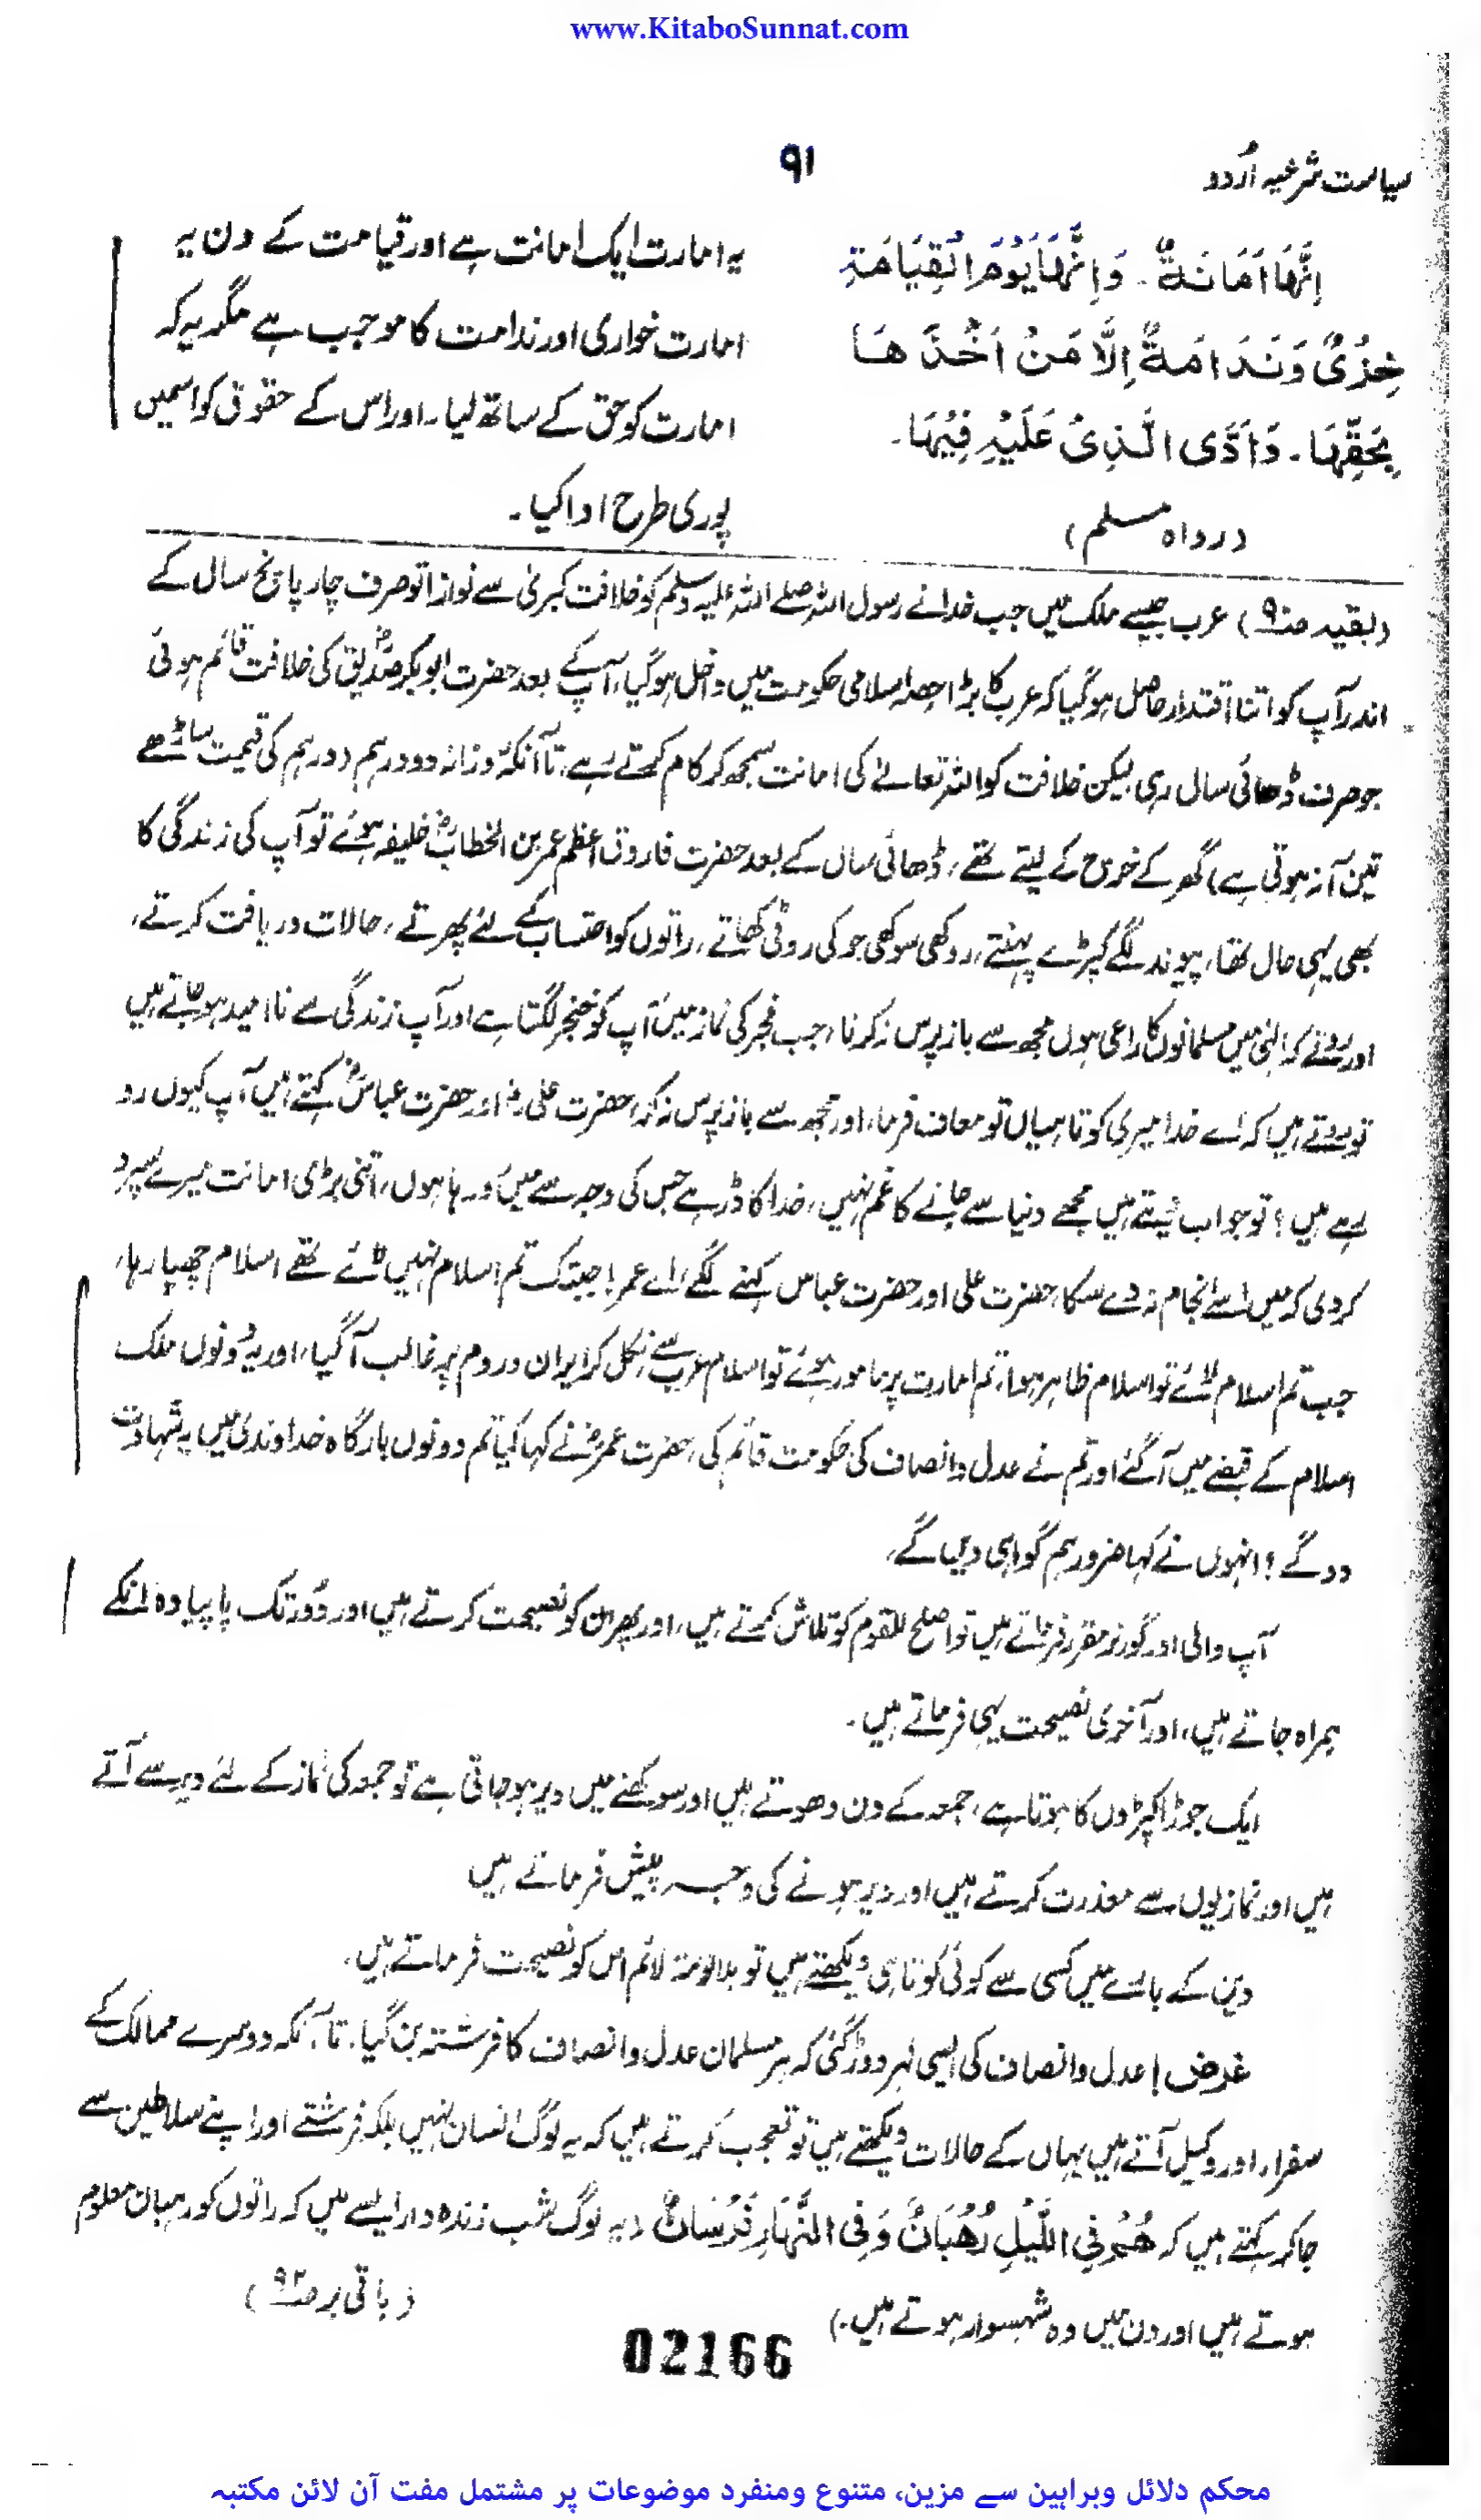 www.KitaboSunnat.com
سیاست شرعیہ اُردو
۹۱
اِنَّهَا اَمَانَةٌ ۔ وَاِنَّهَا يَوْمَ الْقِيَامَةِ
خِزْىٌ وَنَدَامَةٌ اِلَّا مَنْ اَخَذَهَا
بِحَقِّهَا ۔ وَاَدَّى الَّذِىْ عَلَيْهِ فِيْهَا ۔
(رواہ مسلم)
یہ امارت ایک امانت ہے اور قیامت کے دن یہ
امارت خواری اور ندامت کا موجب ہے مگر یہ کہ
امارت کو حق کے ساتھ لیا ۔ اور اس کے حقوق کو اسمیں
پوری طرح ادا کیا ۔
(بقیہ صـ۹۰) عرب جیسے ملک میں جب خدا نے رسول اللہ صلے اللہ علیہ وسلم کو خلافت کبریٰ سے نوازا تو صرف چار پانچ سال کے
اندر آپ کو اتنا اقتدار حاصل ہو گیا کہ عرب کا بڑا حصہ اسلامی حکومت میں داخل ہو گیا، آپ کے بعد حضرت ابو بکر صدیقؓ کی خلافت قائم ہوئی
جو صرف ڈھائی سال رہی لیکن خلافت کو اللہ تعالےٰ کی امانت سمجھ کر کام کرتے رہے، تا آنکہ روزانہ دو درہم (درہم کی قیمت ساڑھے
تین آنہ ہوتی ہے) گھر کے خرچ کے لیتے تھے، ڈھائی سال کے بعد حضرت فاروق اعظم عمر بن الخطابؓ خلیفہ ہوئے تو آپ کی زندگی کا
بھی یہی حال تھا، پیوند لگے کپڑے پہنتے، روکھی سوکھی جو کی روٹی کھاتے، راتوں کو احتساب کے لئے پھرتے، حالات دریافت کرتے،
اور روتے کہ الٰہی میں مسلمانوں کا راعی ہوں مجھ سے باز پرس نہ کرنا، جب فجر کی نماز میں آپ کو خنجر لگتا ہے اور آپ زندگی سے ناامید ہو جاتے ہیں
تو روتے ہیں کہ اے خدا میری کوتاہیاں تو معاف فرما، اور مجھ سے باز پرس نہ کر، حضرت علیؓ اور حضرت عباسؓ کہتے ہیں، آپ کیوں رو
رہے ہیں؟ تو جواب دیتے ہیں مجھے دنیا سے جانے کا غم نہیں، خدا کا ڈر ہے جس کی وجہ سے میں رو رہا ہوں، اتنی بڑی امانت میرے سپرد
کر دی کہ میں اسے انجام نہ دے سکا، حضرت علی اور حضرت عباس کہنے لگے، اے عمر! جبتک تم اسلام نہیں لائے تھے اسلام چھپا رہا،
جب تم اسلام لائے تو اسلام ظاہر ہوا، تم امارت پر مامور ہوئے تو اسلام عرب سے نکل کر ایران و روم پر غالب آ گیا، اور یہ دونوں ملک
اسلام کے قبضے میں آ گئے اور تم نے عدل و انصاف کی حکومت قائم کی، حضرت عمرؓ نے کہا کیا تم دونوں بارگاہ خداوندی میں یہ شہادت
دو گے؟ انہوں نے کہا ضرور ہم گواہی دیں گے،
آپ والی اور گورنر مقرر فرماتے ہیں تو اصلح للقوم کو تلاش کرتے ہیں، اور پھر ان کو نصیحت کرتے ہیں اور دُور تک پا پیادہ انکے
ہمراہ جاتے ہیں، اور آخری نصیحت یہی فرماتے ہیں ۔
ایک جوڑا کپڑوں کا ہوتا ہے، جمعہ کے دن دھوتے ہیں اور سوکھنے میں دیر ہو جاتی ہے تو جمعہ کی نماز کے لئے دیر سے آتے
ہیں اور نمازیوں سے معذرت کرتے ہیں اور دیر ہونے کی وجہ پیش فرماتے ہیں
دین کے بارے میں کسی سے کوئی کوتاہی دیکھتے ہیں تو بلا لومۃ لائم اس کو نصیحت فرماتے ہیں،
غرض! عدل و انصاف کی ایسی لہر دوڑ گئی کہ ہر مسلمان عدل و انصاف کا فرشتہ بن گیا، تا آنکہ دوسرے ممالک کے
سفراء اور وکیل آتے ہیں یہاں کے حالات دیکھتے ہیں تو تعجب کرتے ہیں کہ یہ لوگ انسان نہیں بلکہ فرشتے اور اپنے سلاطین سے
جا کر کہتے ہیں کہ هُمْ فِى اللَّيْلِ رُهْبَانٌ وَفِى النَّهَارِ فُرْسَانٌ (یہ لوگ شب زندہ دار ایسے ہیں کہ راتوں کو رہبان معلوم
ہوتے ہیں اور دن میں وہ شہسوار ہوتے ہیں ۔)
(باقی بر صـ۹۲)
02166
محکم دلائل وبراہین سے مزین، متنوع ومنفرد موضوعات پر مشتمل مفت آن لائن مکتبہ